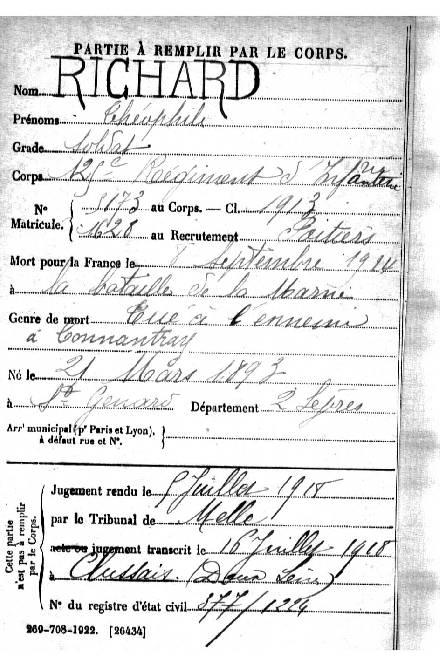 PARTIE À REMPLIR PAR LE CORPS.
Nom RICHARD
Prénoms Théophile
Grade Soldat
Corps 125e Régiment d'Infanterie
No Matricule. { 5173 au Corps. — Cl. 1913
1628 au Recrutement Poitiers
Mort pour la France le 8 septembre 1914
à la bataille de la Marne
Genre de mort Tué à l'ennemi
à Connantray
Né le 21 Mars 1893
à St Génard Département 2 Sèvres
Arrt municipal (pr Paris et Lyon),
à défaut rue et No.
Cette partie n'est pas à remplir par le Corps.
Jugement rendu le 5 Juillet 1918
par le Tribunal de Melle
acte ou jugement transcrit le 16 Juillet 1918
à Chussais (Deux Sèvres)
No du registre d'état civil 577/1224
269-708-1922. [26434]